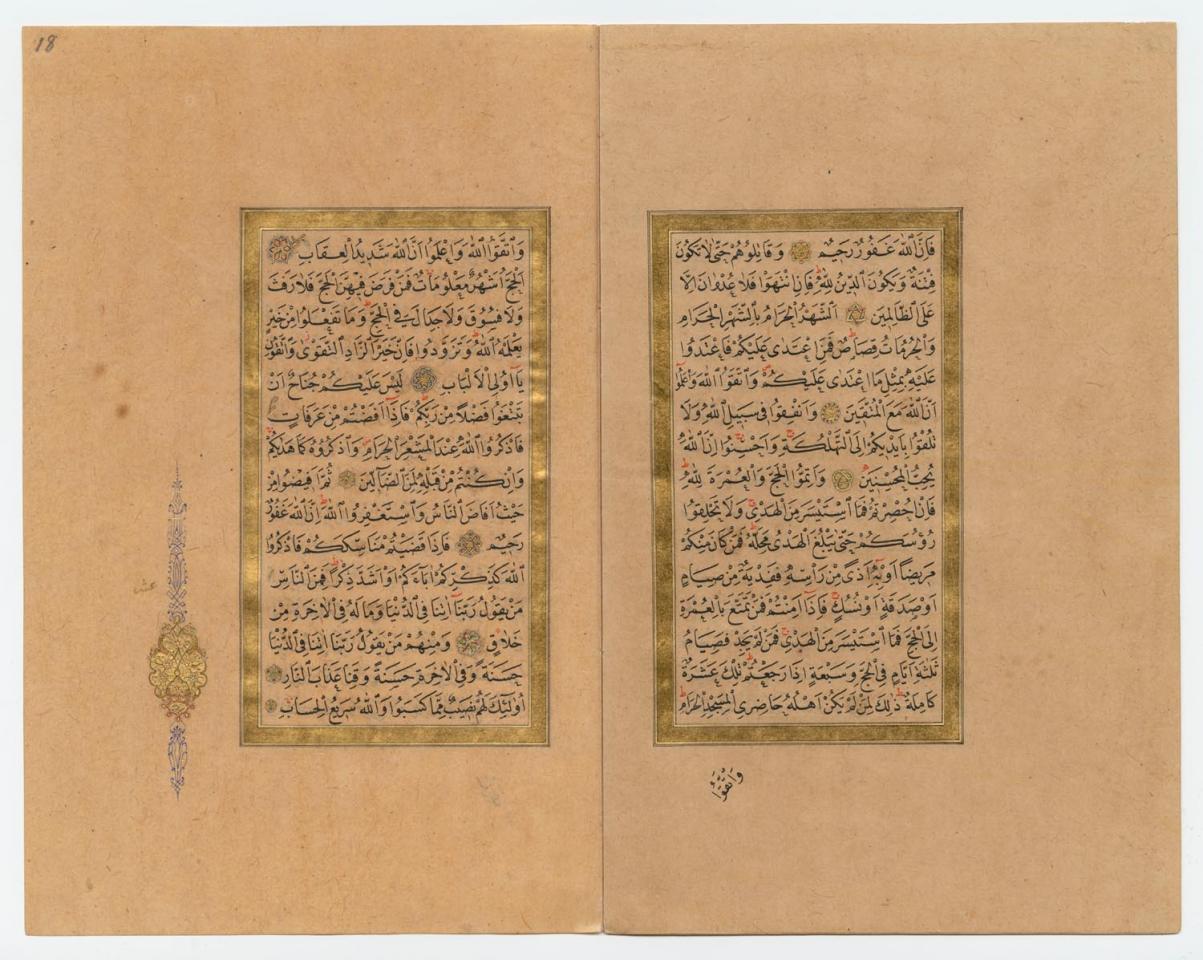 فَاِنَّ اللّٰهَ غَفُورٌ رَحِيمٌ وَقَاتِلُوهُمْ حَتّٰى لَا تَكُونَ
فِتْنَةٌ وَيَكُونَ الدِّينُ لِلّٰهِ فَاِنِ انْتَهَوْا فَلَا عُدْوَانَ اِلَّا
عَلَى الظَّالِمِينَ اَلشَّهْرُ الْحَرَامُ بِالشَّهْرِ الْحَرَامِ
وَالْحُرُمَاتُ قِصَاصٌ فَمَنِ اعْتَدٰى عَلَيْكُمْ فَاعْتَدُوا
عَلَيْهِ بِمِثْلِ مَا اعْتَدٰى عَلَيْكُمْ وَاتَّقُوا اللّٰهَ وَاعْلَمُوا
اَنَّ اللّٰهَ مَعَ الْمُتَّقِينَ وَاَنْفِقُوا فِى سَبِيلِ اللّٰهِ وَلَا
تُلْقُوا بِاَيْدِيكُمْ اِلَى التَّهْلُكَةِ وَاَحْسِنُوا اِنَّ اللّٰهَ
يُحِبُّ الْمُحْسِنِينَ وَاَتِمُّوا الْحَجَّ وَالْعُمْرَةَ لِلّٰهِ
فَاِنْ اُحْصِرْتُمْ فَمَا اسْتَيْسَرَ مِنَ الْهَدْىِ وَلَا تَحْلِقُوا
رُؤُسَكُمْ حَتّٰى يَبْلُغَ الْهَدْىُ مَحِلَّهُ فَمَنْ كَانَ مِنْكُمْ
مَرِيضًا اَوْ بِهِ اَذًى مِنْ رَاْسِهِ فَفِدْيَةٌ مِنْ صِيَامٍ
اَوْ صَدَقَةٍ اَوْ نُسُكٍ فَاِذَا اَمِنْتُمْ فَمَنْ تَمَتَّعَ بِالْعُمْرَةِ
اِلَى الْحَجِّ فَمَا اسْتَيْسَرَ مِنَ الْهَدْىِ فَمَنْ لَمْ يَجِدْ فَصِيَامُ
ثَلٰثَةِ اَيَّامٍ فِى الْحَجِّ وَسَبْعَةٍ اِذَا رَجَعْتُمْ تِلْكَ عَشَرَةٌ
كَامِلَةٌ ذٰلِكَ لِمَنْ لَمْ يَكُنْ اَهْلُهُ حَاضِرِى الْمَسْجِدِ الْحَرَامِ
وَاتَّقُوا
18
وَاتَّقُوا اللّٰهَ وَاعْلَمُوا اَنَّ اللّٰهَ شَدِيدُ الْعِقَابِ
اَلْحَجُّ اَشْهُرٌ مَعْلُومَاتٌ فَمَنْ فَرَضَ فِيهِنَّ الْحَجَّ فَلَا رَفَثَ
وَلَا فُسُوقَ وَلَا جِدَالَ فِى الْحَجِّ وَمَا تَفْعَلُوا مِنْ خَيْرٍ
يَعْلَمْهُ اللّٰهُ وَتَزَوَّدُوا فَاِنَّ خَيْرَ الزَّادِ التَّقْوٰى وَاتَّقُونِ
يَا اُولِى الْاَلْبَابِ لَيْسَ عَلَيْكُمْ جُنَاحٌ اَنْ
تَبْتَغُوا فَضْلًا مِنْ رَبِّكُمْ فَاِذَا اَفَضْتُمْ مِنْ عَرَفَاتٍ
فَاذْكُرُوا اللّٰهَ عِنْدَ الْمَشْعَرِ الْحَرَامِ وَاذْكُرُوهُ كَمَا هَدٰيكُمْ
وَاِنْ كُنْتُمْ مِنْ قَبْلِهِ لَمِنَ الضَّالِّينَ ثُمَّ اَفِيضُوا مِنْ
حَيْثُ اَفَاضَ النَّاسُ وَاسْتَغْفِرُوا اللّٰهَ اِنَّ اللّٰهَ غَفُورٌ
رَحِيمٌ فَاِذَا قَضَيْتُمْ مَنَاسِكَكُمْ فَاذْكُرُوا
اللّٰهَ كَذِكْرِكُمْ اٰبَاءَكُمْ اَوْ اَشَدَّ ذِكْرًا فَمِنَ النَّاسِ
مَنْ يَقُولُ رَبَّنَا اٰتِنَا فِى الدُّنْيَا وَمَا لَهُ فِى الْاٰخِرَةِ مِنْ
خَلَاقٍ وَمِنْهُمْ مَنْ يَقُولُ رَبَّنَا اٰتِنَا فِى الدُّنْيَا
حَسَنَةً وَفِى الْاٰخِرَةِ حَسَنَةً وَقِنَا عَذَابَ النَّارِ
اُولٰئِكَ لَهُمْ نَصِيبٌ مِمَّا كَسَبُوا وَاللّٰهُ سَرِيعُ الْحِسَابِ